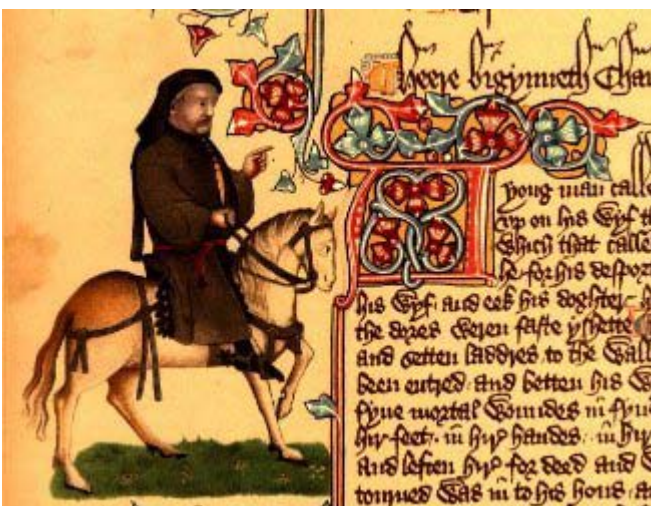 Heere bigynneth Chau
A yong man calle
vp on his wyf &
Which that calle
he for his despor
his wyf and eek his doghter h
the dores weren faste yshette
and setten laddres to the wall
been entred and betten his w
fyue mortal woundes in fyue
hir feet in hir handes in hir
and leften hir for deed and w
tourned was in to his hous a